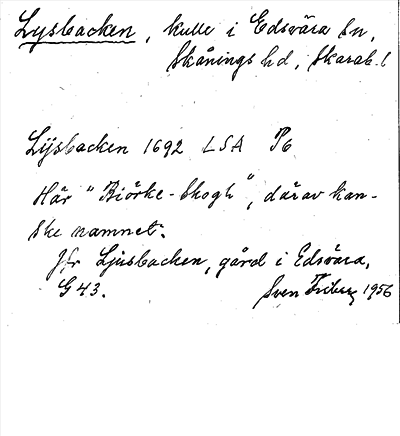 Lysbacken, kulle i Edsvära sn,
Skånings hd, Skarab. l
Lijsbacken 1692 LSA P6
Här "Biörke-Skogh", därav kan-
ske namnet.
Jfr Ljusbacken, gård i Edsvära,
G 43.
Sven Friberg 1956